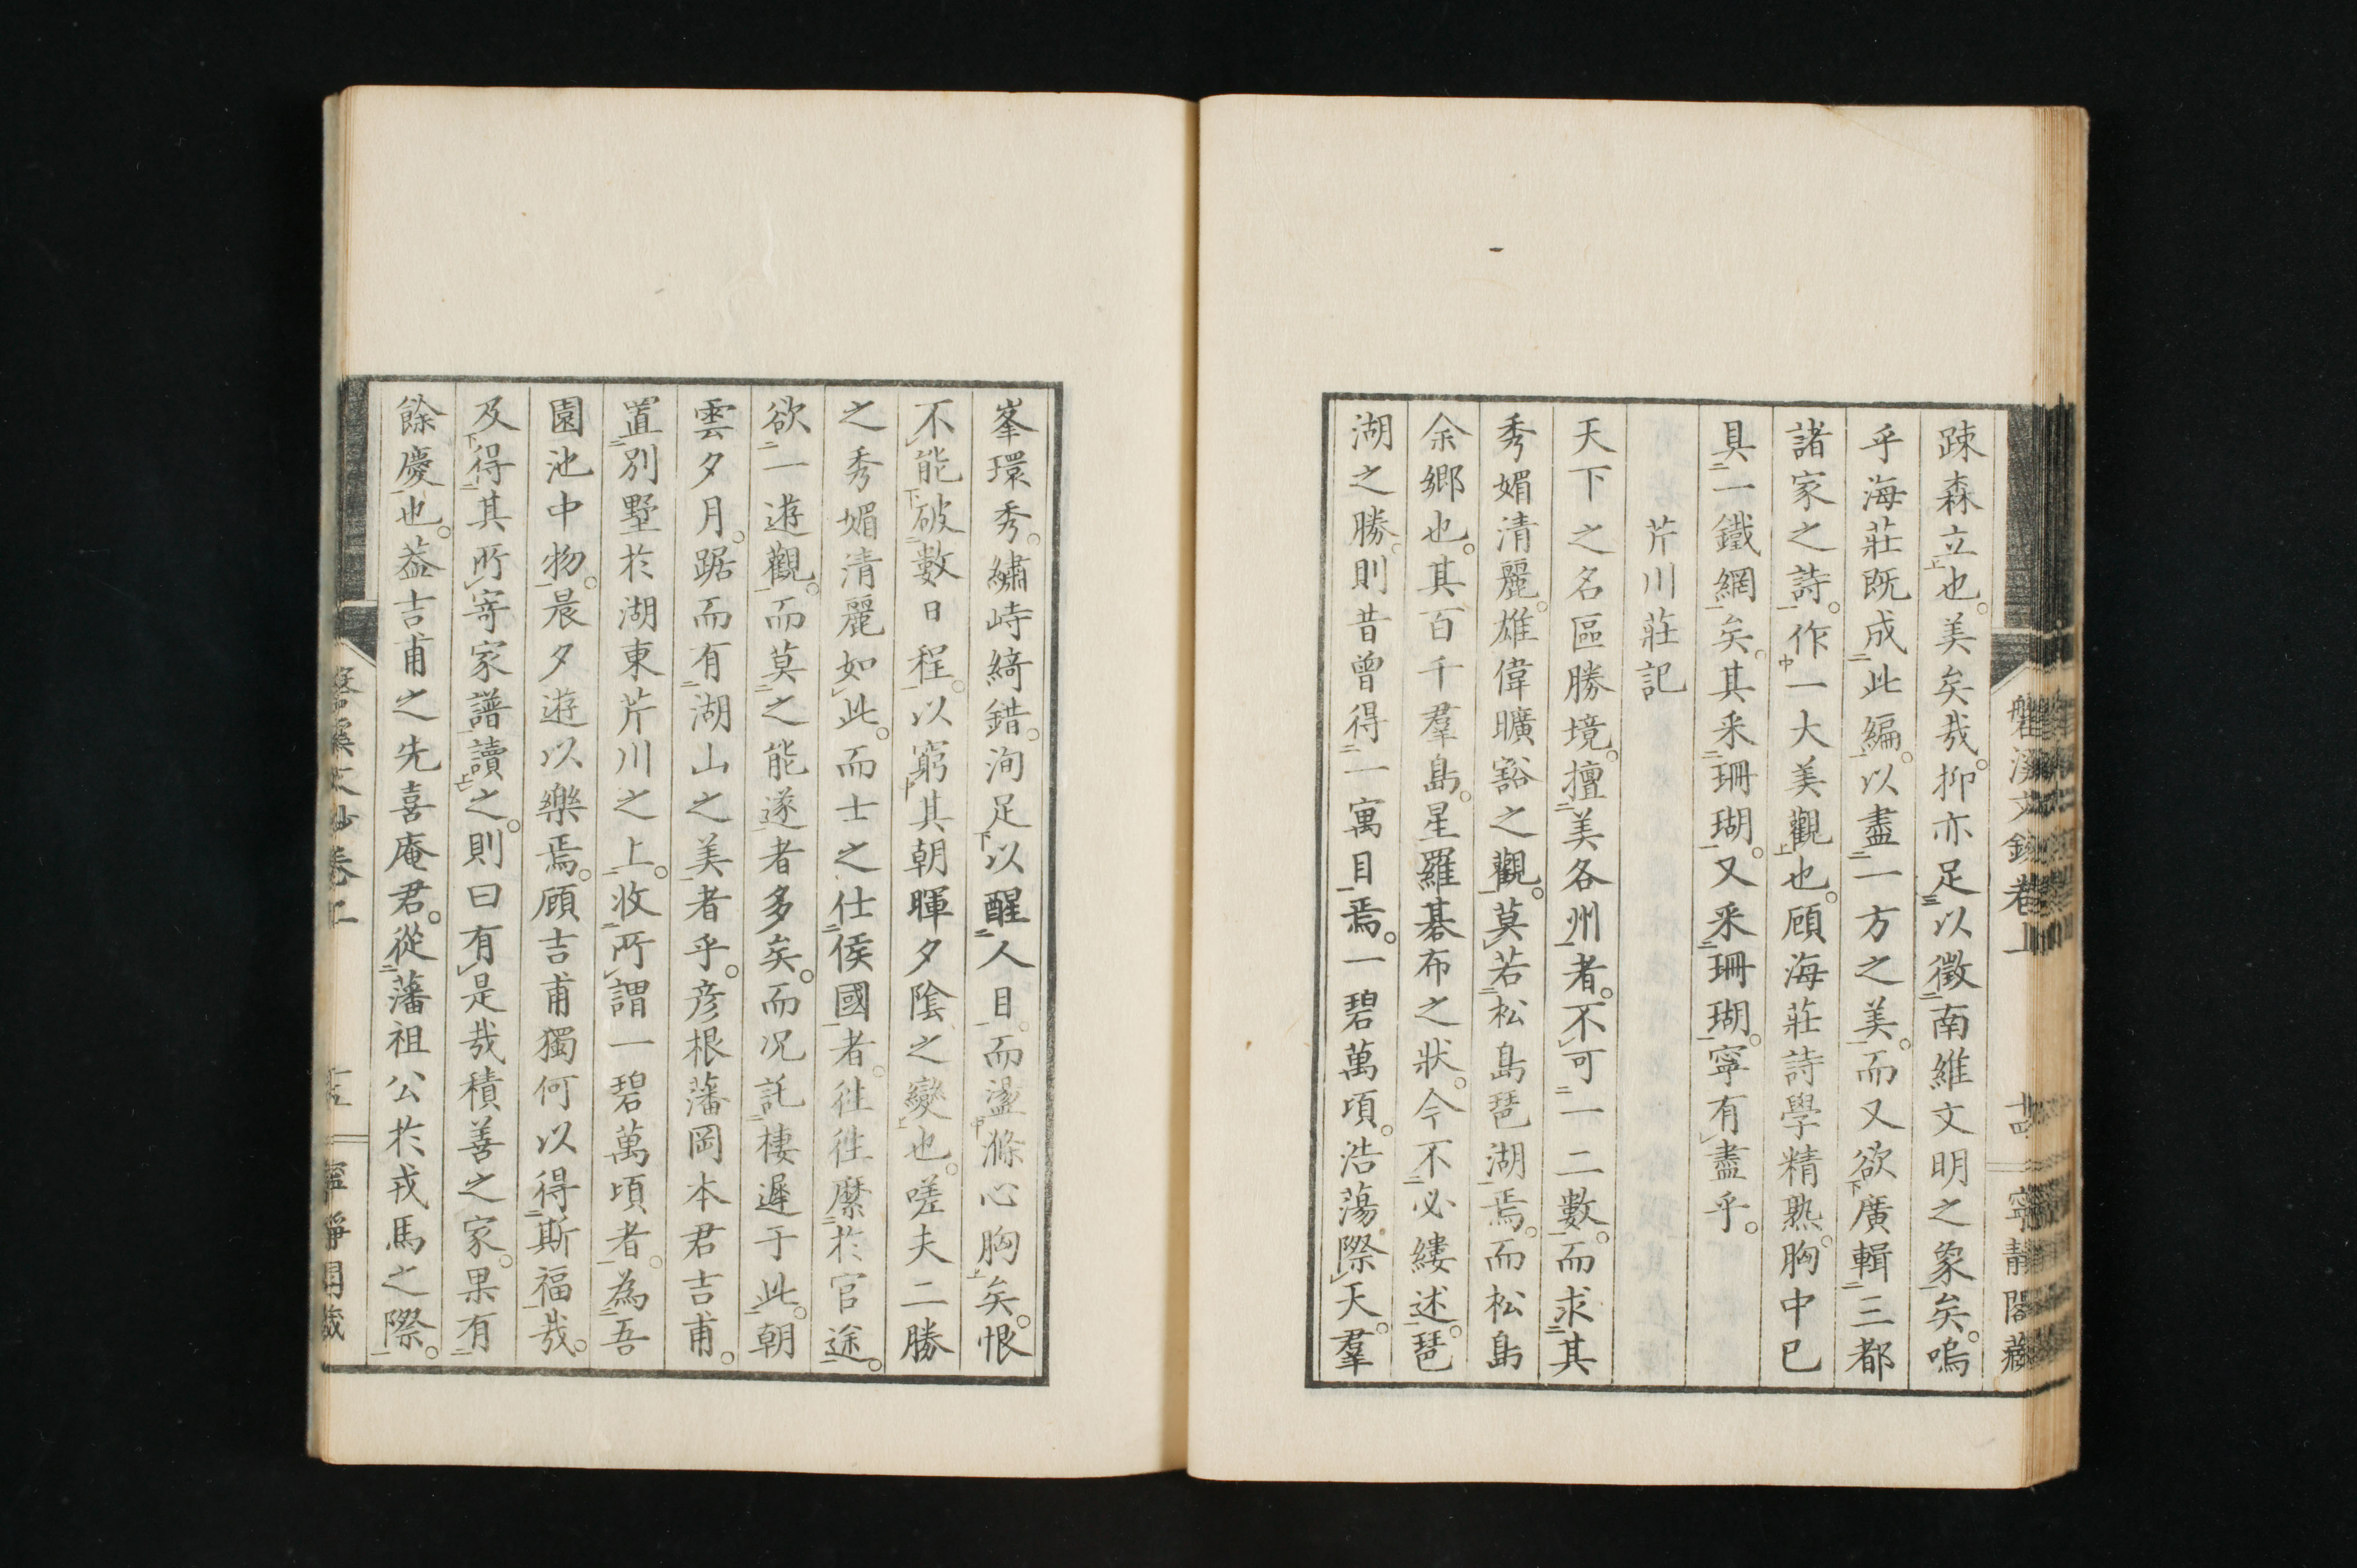 踈森立也。美矣哉。抑亦足以徵南維文明之象矣。嗚
乎海莊既成此編。以盡一方之美。而又欲廣輯三都
諸家之詩。作一大美觀也。顧海莊詩學精熟。胸中已
具一鐵網矣。其釆珊瑚。又釆珊瑚。寧有盡乎。
芹川莊記
天下之名區勝境。擅美各州者。不可一二數。而求其
秀媚清麗。雄偉曠豁之觀。莫若松島琶湖焉。而松島
余鄉也。其百千羣島。星羅碁布之狀。今不必縷述。琶
湖之勝。則昔曾得一寓目焉。一碧萬頃。浩蕩際天。羣
磐溪文鈔卷上 十四 寧靜閣藏
峯環秀。繡峙綺錯。洵足以醒人目。而盪滌心胸矣。恨
不能破數日程。以窮其朝暉夕陰之變也。嗟夫二勝
之秀媚清麗如此。而士之仕侯國者。往往縻於官途。
欲一遊觀。而莫之能遂者多矣。而況託棲遲于此。朝
雲夕月。踞而有湖山之美者乎。彥根藩岡本君吉甫。
置別墅於湖東芹川之上。收所謂一碧萬頃者。為吾
園池中物。晨夕遊以樂焉。顧吉甫獨何以得斯福哉。
及得其所寄家譜讀之。則曰有是哉積善之家。果有
餘慶也。葢吉甫之先喜庵君。從藩祖公於戎馬之際。